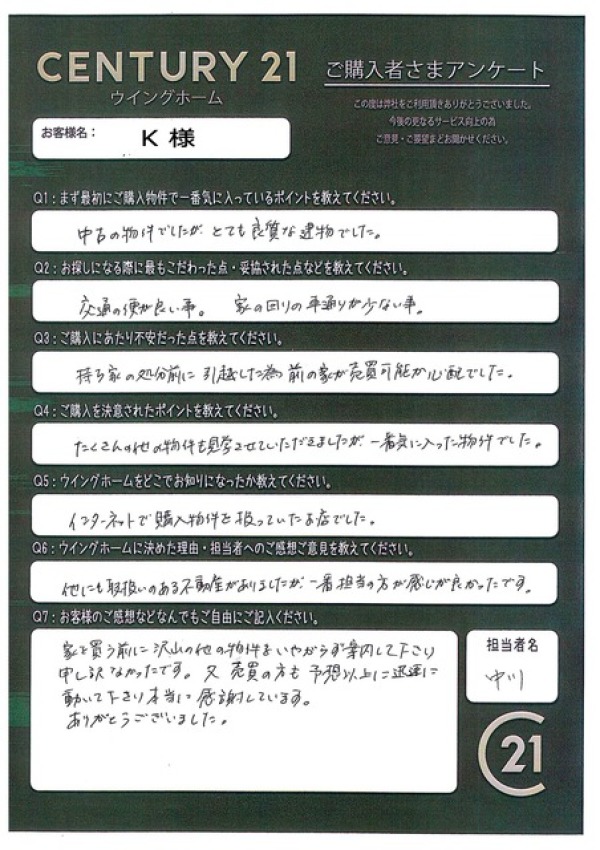 CENTURY 21
ウイングホーム
ご購入者さまアンケート
この度は弊社をご利用頂きありがとうございました。
今後の更なるサービス向上の為
ご意見・ご要望までお聞かせください。
お客様名：
K 様
Q1：まず最初にご購入物件で一番気に入っているポイントを教えてください。
中古の物件でしたが とても良質な建物でした。
Q2：お探しになる際に最もこだわった点・妥協された点などを教えてください。
交通の便が良い事。 家の回りの車通りが少ない事。
Q3：ご購入にあたり不安だった点を教えてください。
持ち家の処分前に引越した為 前の家が売買可能か心配でした。
Q4：ご購入を決意されたポイントを教えてください。
たくさんの他の物件も見学させていただきましたが、一番気に入った物件でした。
Q5：ウイングホームをどこでお知りになったか教えてください。
インターネットで購入物件を扱っていたお店でした。
Q6：ウイングホームに決めた理由・担当者へのご感想ご意見を教えてください。
他にも取扱いのある不動産がありましたが、一番担当の方が感じが良かったです。
Q7：お客様のご感想などなんでもご自由にご記入ください。
家を買う前に沢山の他の物件をいやがらず案内して下さり
申し訳なかったです。又 売買の方も予想以上に迅速に
動いて下さり本当に感謝しています。
ありがとうございました。
担当者名
中川
21